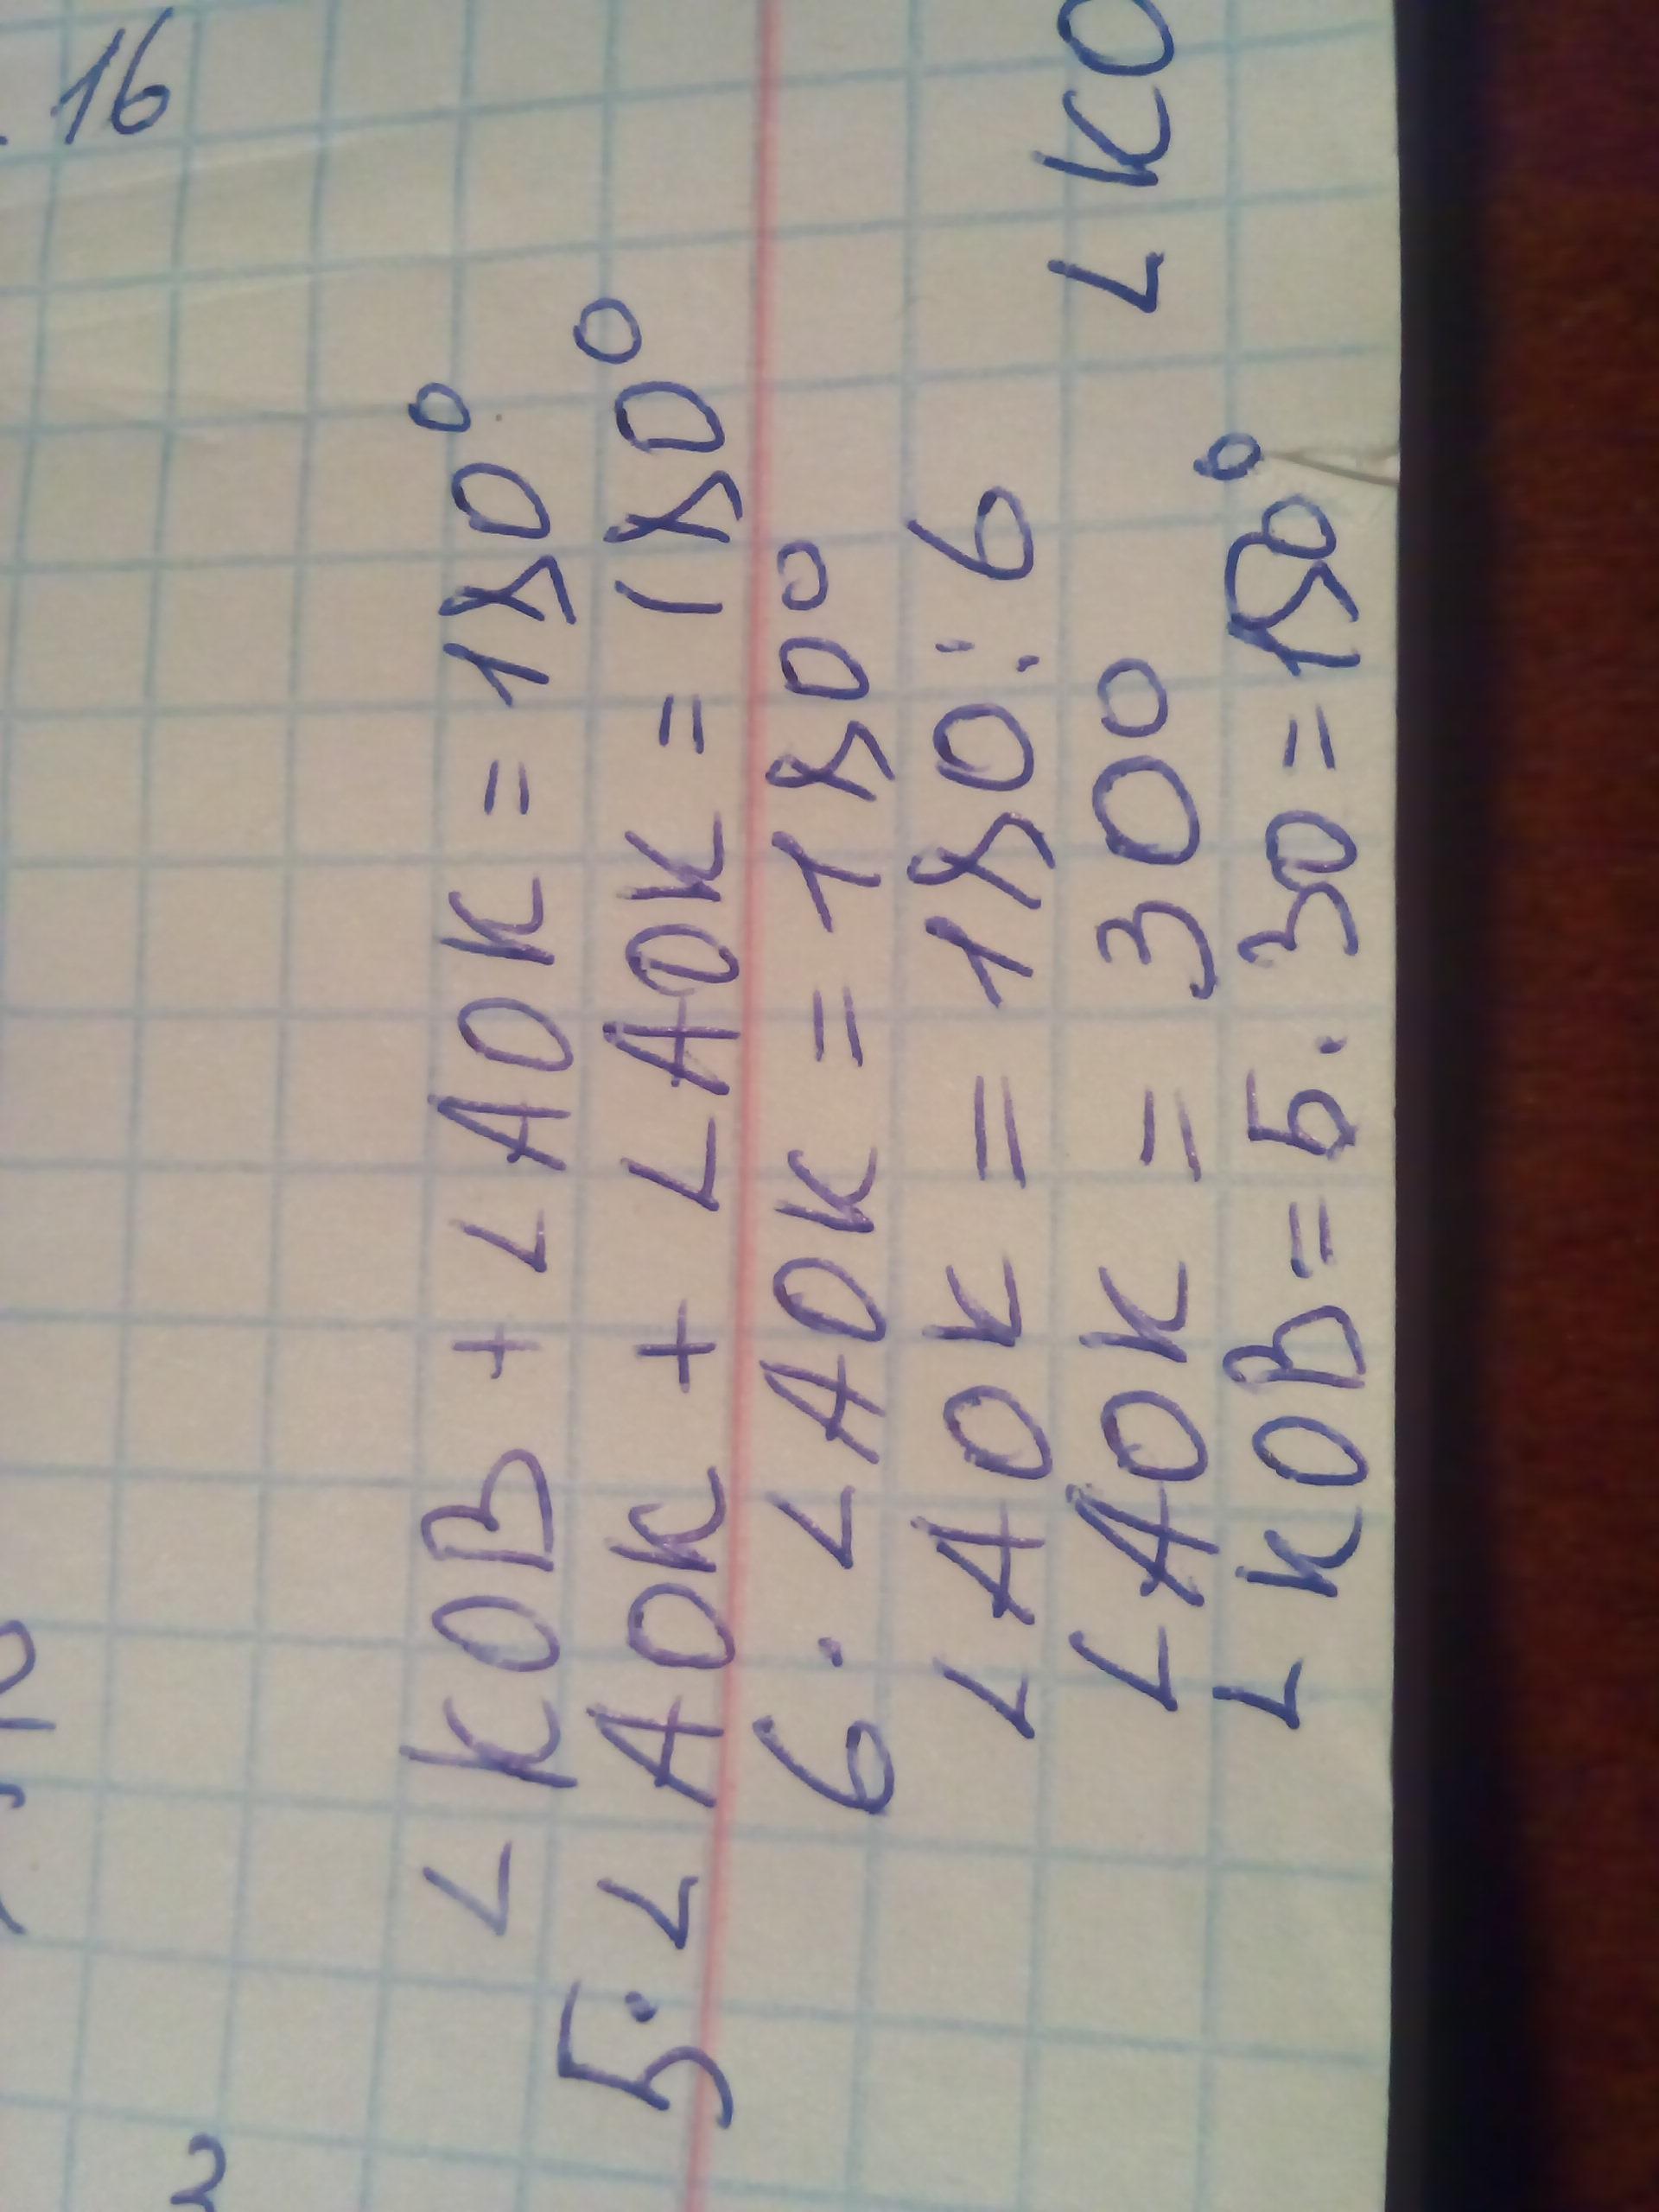 . 16
∠KOB + ∠AOK = 180°
5·∠AOK + ∠AOK = 180°
6·∠AOK = 180°
∠AOK = 180:6
∠AOK = 30° ∠KO
∠KOB = 5·30 = 150°